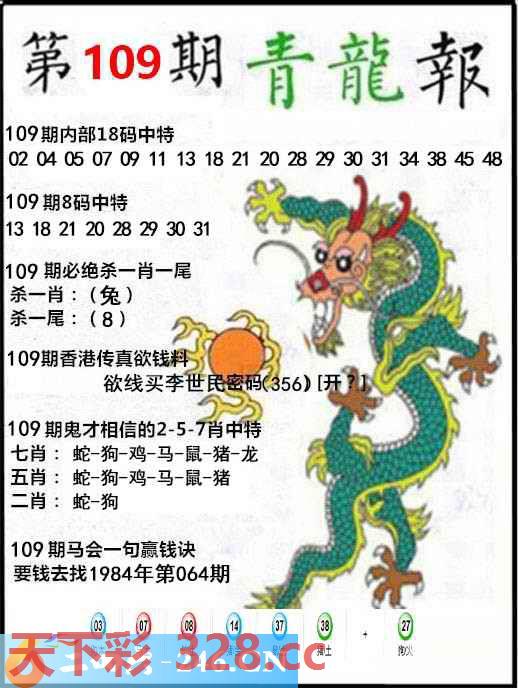 第109期青龍報
109期内部18码中特
02 04 05 07 09 11 13 18 21 20 28 29 30 31 34 38 45 48
109期8码中特
13 18 21 20 28 29 30 31
109期必绝杀一肖一尾
杀一肖：(兔)
杀一尾：(8)
109期香港传真欲钱料
欲线买李世民密码(356)[开?]
109期鬼才相信的2-5-7肖中特
七肖：蛇-狗-鸡-马-鼠-猪-龙
五肖：蛇-狗-鸡-马-鼠-猪
二肖：蛇-狗
109期马会一句赢钱诀
要钱去找1984年第064期
03 07 08 14 37 38 + 27
天下彩-328.cc